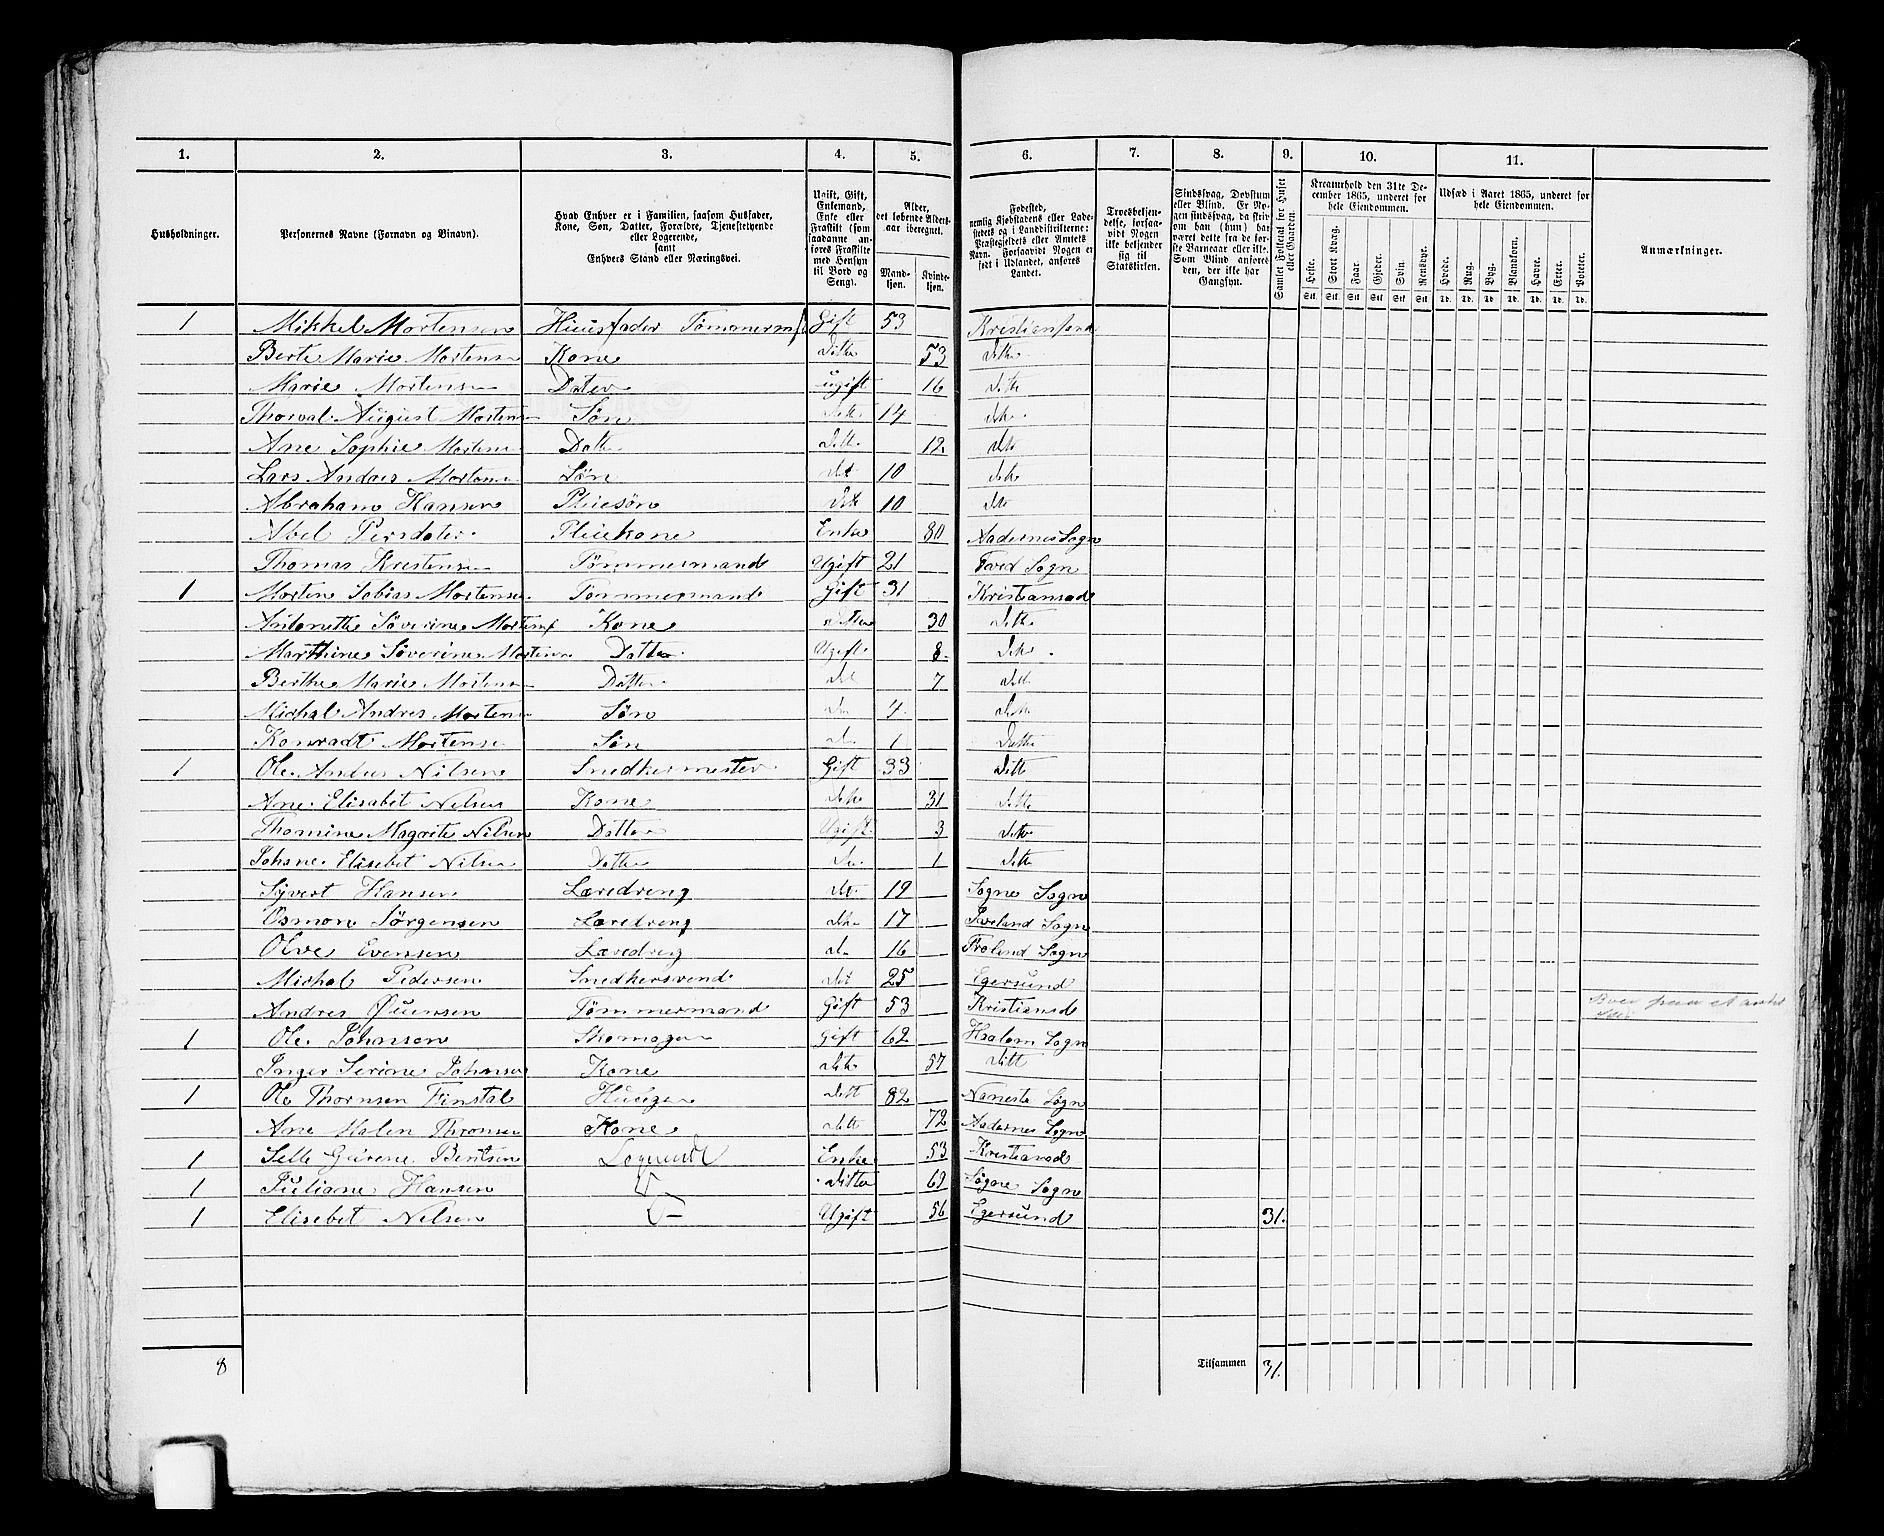 1. 2. 3. 4. 5. 6. 7. 8. 9. 10. 11.
Husholdninger.
Personernes Navne (Fornavn og Binavn).
Hvad Enhver er i Familien, saasom Husfader, Kone, Søn, Datter, Forældre, Tjenestetyende eller Logerende, samt Enhvers Stand eller Næringsvei.
Ugift, Gift, Enkemand, Enke eller Fraskilt (som saadanne anføres Fraskilte med Hensyn til Bord og Seng).
Alder, det løbende Aldersaar iberegnet.
Mandkjøn. Kvindekjøn.
Fødested, nemlig Kjøbstadens eller Ladestedets og i Landdistrikterne: Præstegjeldets eller Amtets Navn. Forsaavidt Nogen er født i Udlandet, anføres Landet.
Troesbekjendelse, forsaavidt Nogen ikke bekjender sig til Statskirken.
Sindssvag, Døvstum eller Blind. Er Nogen sindssvag, da skrives om han (hun) har været dette fra de første Barneaar eller ikke. Som Blind anføres den, der ikke har Gangsyn.
Samlet Folketal for Huset eller Gaarden.
Kreaturhold den 31te December 1865, underet for hele Eiendommen.
Heste. Stort Kvæg. Faar. Gjeder. Svin. Rensdyr.
Stk. Stk. Stk. Stk. Stk. Stk.
Udsæd i Aaret 1865, underet for hele Eiendommen.
Hvede. Rug. Byg. Blandkorn. Havre. Erter. Poteter.
Td. Td. Td. Td. Td. Td. Td.
Anmærkninger.
1 Mikkel Mortensen Huusfader Gift 53
Berte Marie Mortens Kone Ditto 53 ditto
Marie Mortensen Dater ugift 16 ditto
Thorval August Mortensen Søn ditto 14 ditto
Ane Sophie Mortens Datter ditto 12 ditto
Lars Andres Mortens Søn dit 10 ditto
Abraham Hansen Pleiesøn dito 10 ditto
Abel Persdater Pleiekone Enke 80 Aadernes Sogn
Thomas Kristensen Tømmermand Ugift 21 Sogn
1 Morten Tobias Mortensen Tømmermand Gift 31 Kristiansad
Antonette Søverine Mortens Kone Ditto 30 ditto
Marthine Severine Mortensen Datter Ugift 8 ditto
Berthe Marie Mortens Datter dit 7 ditt
Michal Andres Mortens Søn do 4 ditto
Konradt Mortense Søn do 1 Ditto
1 Ole Andres Nilsen Snedkermester Gift 33 ditto
Ane Elisabet Nilsen Kone ditto 31 ditto
Thomine Magrete Nilsen Datter Ugift 3 ditto
Johane Elisebet Nilsen Datter do 1 ditto
Syvert Hansen Læredreng do 19 Søgne Sogn
Osmon Jørgensen Læredreng ditto 17 Sogn
Olve Evensen Læredreng do 16 Froland Sogn
Michal Pedersen Snedkersvend dit 25 Egersund
Andres Tømmermand Gift 53 Kristiansd
1 Ole Johnsen Skomager Gift 62 Haalom Sogn
Inger Serine Johnsen Kone ditto 57 ditt
1 Ole Thornsen Finstal ditt 82 Sogn
Ane Malen Thronsen Kone ditto 72 Aadernes Sogn
1 Bentsen Logerende Enke 53 Kristiansd
1 Juliane Hansen Ditto 69 Søgne Sogn
1 Elisebet Nelsen Ugift 56 Egersund 31.
8 Tilsammen 31.